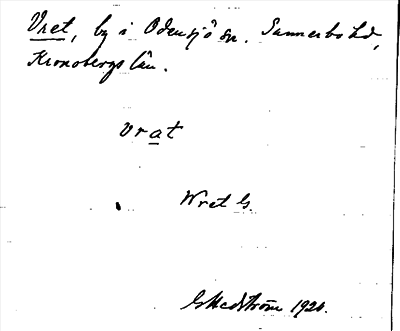 Vret, by i Odensjö sn. Sunnerbo hd,
Kronobergs län.
vrat
Wret G.
G Hedström 1920.